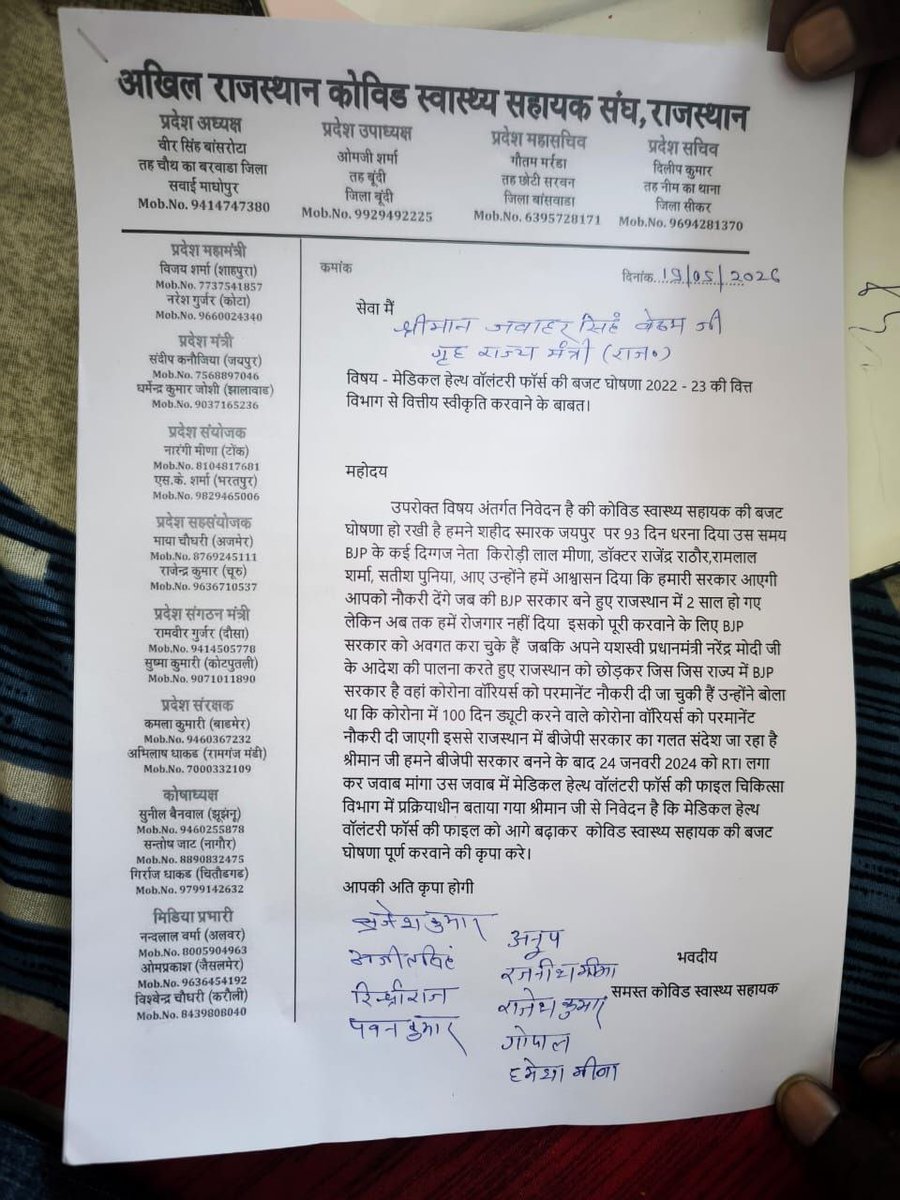 अखिल राजस्थान कोविड स्वास्थ्य सहायक संघ,राजस्थान
प्रदेश अध्यक्ष
वीर सिंह बांसरोटा
तह चौथ का बरवाडा जिला
सवाई माघोपुर
Mob.No. 9414747380
प्रदेश उपाध्यक्ष
ओमजी शर्मा
तह बूंदी
जिला बूंदी
Mob.No. 9929492225
प्रदेश महासचिव
गौतम मर्रडा
तह छोटी सरवन
जिला बांसवाडा
Mob.No. 6395728171
प्रदेश सचिव
दिलीप कुमार
तह नीम का थाना
जिला सीकर
Mob.No. 9694281370
प्रदेश महामंत्री
विजय शर्मा (शाहपुरा)
Mob.No. 7737541857
नरेश गुर्जर (कोटा)
Mob.No. 9660024340
प्रदेश मंत्री
संदीप कनौजिया (जयपुर)
Mob.No. 7568897046
धर्मेन्द्र कुमार जोशी (झालावाड)
Mob.No. 9037165236
प्रदेश संयोजक
नारंगी मीणा (टोंक)
Mob.No. 8104817681
एस.के. शर्मा (भरतपुर)
Mob.No. 9829465006
प्रदेश सहसंयोजक
माया चौघरी (अजमेर)
Mob.No. 8769245111
राजेन्द्र कुमार (चूरु)
Mob.No. 9636710537
प्रदेश संगठन मंत्री
रामवीर गुर्जर (दौसा)
Mob.No. 9414505778
सुष्मा कुमारी (कोटपुतली)
Mob.No. 9071011890
प्रदेश संरक्षक
कमला कुमारी (बाडमेर)
Mob.No. 9460367232
अभिलाष धाकड (रामगंज मंडी)
Mob.No. 7000332109
कोषाध्यक्ष
सुनील बैनवाल (झूझंनू)
Mob.No. 9460255878
सन्तोष जाट (नागौर)
Mob.No. 8890832475
गिर्राज धाकड (चितौडगड)
Mob.No. 9799142632
मिडिया प्रभारी
नन्दलाल वर्मा (अलवर)
Mob.No. 8005904963
ओमप्रकाश (जैसलमेर)
Mob.No. 9636454192
विश्वेन्द्र चौधरी (करौली)
Mob.No. 8439808040
कमांक
दिनांक 19/05/2026
सेवा मैं
श्रीमान जवाहर सिहं बेढम जी
गृह राज्य मंत्री (राज०)
विषय - मेडिकल हेल्थ वॉलंटरी फॉर्स की बजट घोषणा 2022 - 23 की वित्त
विभाग से वित्तीय स्वीकृति करवाने के बाबत।
महोदय
उपरोक्त विषय अंतर्गत निवेदन है की कोविड स्वास्थ्य सहायक की बजट
घोषणा हो रखी है हमने शहीद स्मारक जयपुर पर 93 दिन धरना दिया उस समय
BJP के कई दिग्गज नेता किरोड़ी लाल मीणा, डॉक्टर राजेंद्र राठौर,रामलाल
शर्मा, सतीश पुनिया, आए उन्होंने हमें आश्वासन दिया कि हमारी सरकार आएगी
आपको नौकरी देंगे जब की BJP सरकार बने हुए राजस्थान में 2 साल हो गए
लेकिन अब तक हमें रोजगार नहीं दिया इसको पूरी करवाने के लिए BJP
सरकार को अवगत करा चुके हैं जबकि अपने यशस्वी प्रधानमंत्री नरेंद्र मोदी जी
के आदेश की पालना करते हुए राजस्थान को छोड़कर जिस जिस राज्य में BJP
सरकार है वहां कोरोना वॉरियर्स को परमानेंट नौकरी दी जा चुकी हैं उन्होंने बोला
था कि कोरोना में 100 दिन ड्यूटी करने वाले कोरोना वॉरियर्स को परमानेंट
नौकरी दी जाएगी इससे राजस्थान में बीजेपी सरकार का गलत संदेश जा रहा है
श्रीमान जी हमने बीजेपी सरकार बनने के बाद 24 जनवरी 2024 को RTI लगा
कर जवाब मांगा उस जवाब में मेडिकल हेल्थ वॉलंटरी फॉर्स की फाइल चिकित्सा
विभाग में प्रक्रियाधीन बताया गया श्रीमान जी से निवेदन है कि मेडिकल हेल्थ
वॉलंटरी फॉर्स की फाइल को आगे बढ़ाकर कोविड स्वास्थ्य सहायक की बजट
घोषणा पूर्ण करवाने की कृपा करे।
आपकी अति कृपा होगी
बृजेश कुमार
अजीतसिहं
रिध्धीराज
पवन कुमार
अनुप
रजनीश मीना
राजेश कुमार
गोपाल
हमेशा मीना
भवदीय
समस्त कोविड स्वास्थ्य सहायक